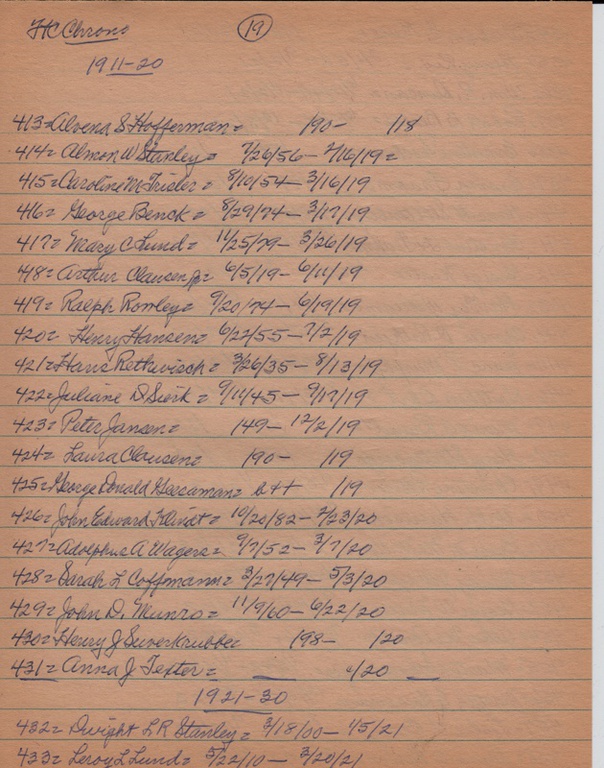 HC Chrono (19)
1911-20
413= Alvena S Hofferman = 190- /18
414= Almon W Stanley = 7/26/56 - 2/16/19 =
415= Caroline M Trisler = 8/10/54 - 3/16/19
416= George Benck = 8/29/74 - 3/17/19
417= Mary C Lund = 11/25/79 - 3/26/19
418= Arthur Clausen Jr = 6/5/19 - 6/11/19
419= Ralph Rowley = 9/20/74 - 6/19/19
420= Henry Hansen = 6/22/55 - 7/2/19
421= Hans Rethwisch = 3/26/35 - 8/13/19
422= Juliane D Sierk = 9/11/45 - 9/17/19
423= Peter Jansen = 149 - 12/2/19
424= Laura Clausen = 190- /19
425= George Donald = /19
426= John Edward Flindt = 10/20/82 - 2/23/20
427= Adolphus A Wagers = 9/7/52 - 3/7/20
428= Sarah L Coffmann = 3/27/49 - 5/3/20
429= John D. Munro = 11/9/60 - 6/22/20
430= Henry J Suverkrubbe 198- /20
431= Anna J Texter = /20
1921-30
432= Dwight L R Stanley = 3/18/00 - 1/5/21
433= Leroy L Lund = 5/22/10 - 3/20/21